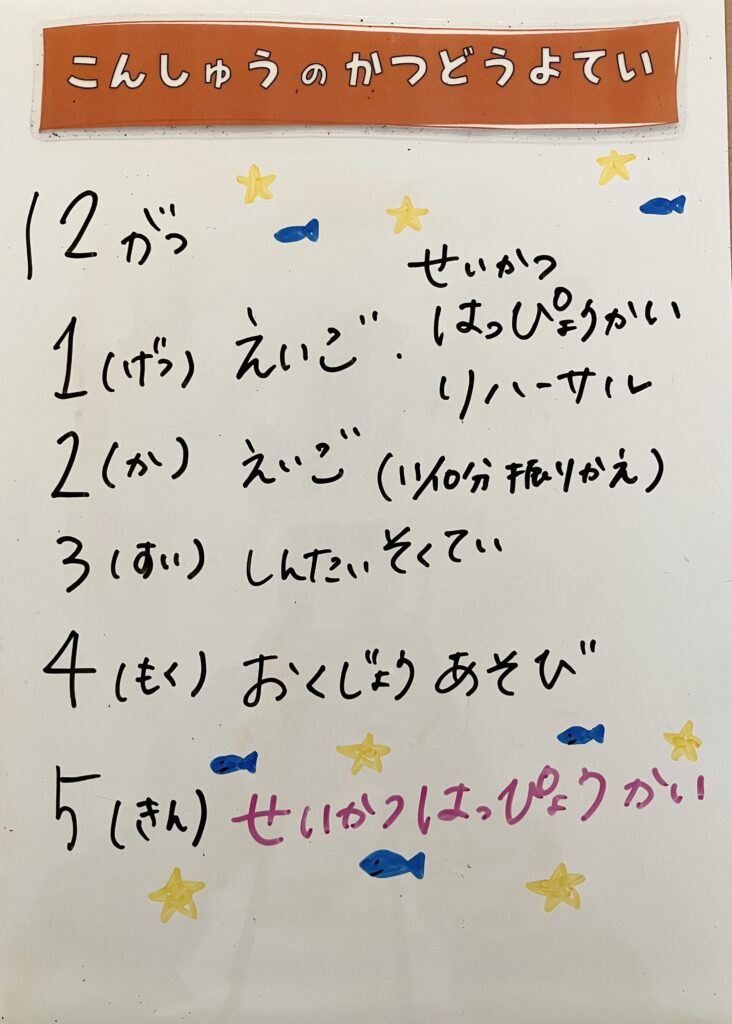 こんしゅうのかつどうよてい
12がつ
1(げつ) えいご・せいかつ
はっぴょうかい
リハーサル
2(か) えいご(11/10分振りかえ)
3(すい) しんたいそくてい
4(もく) おくじょうあそび
5(きん) せいかつはっぴょうかい